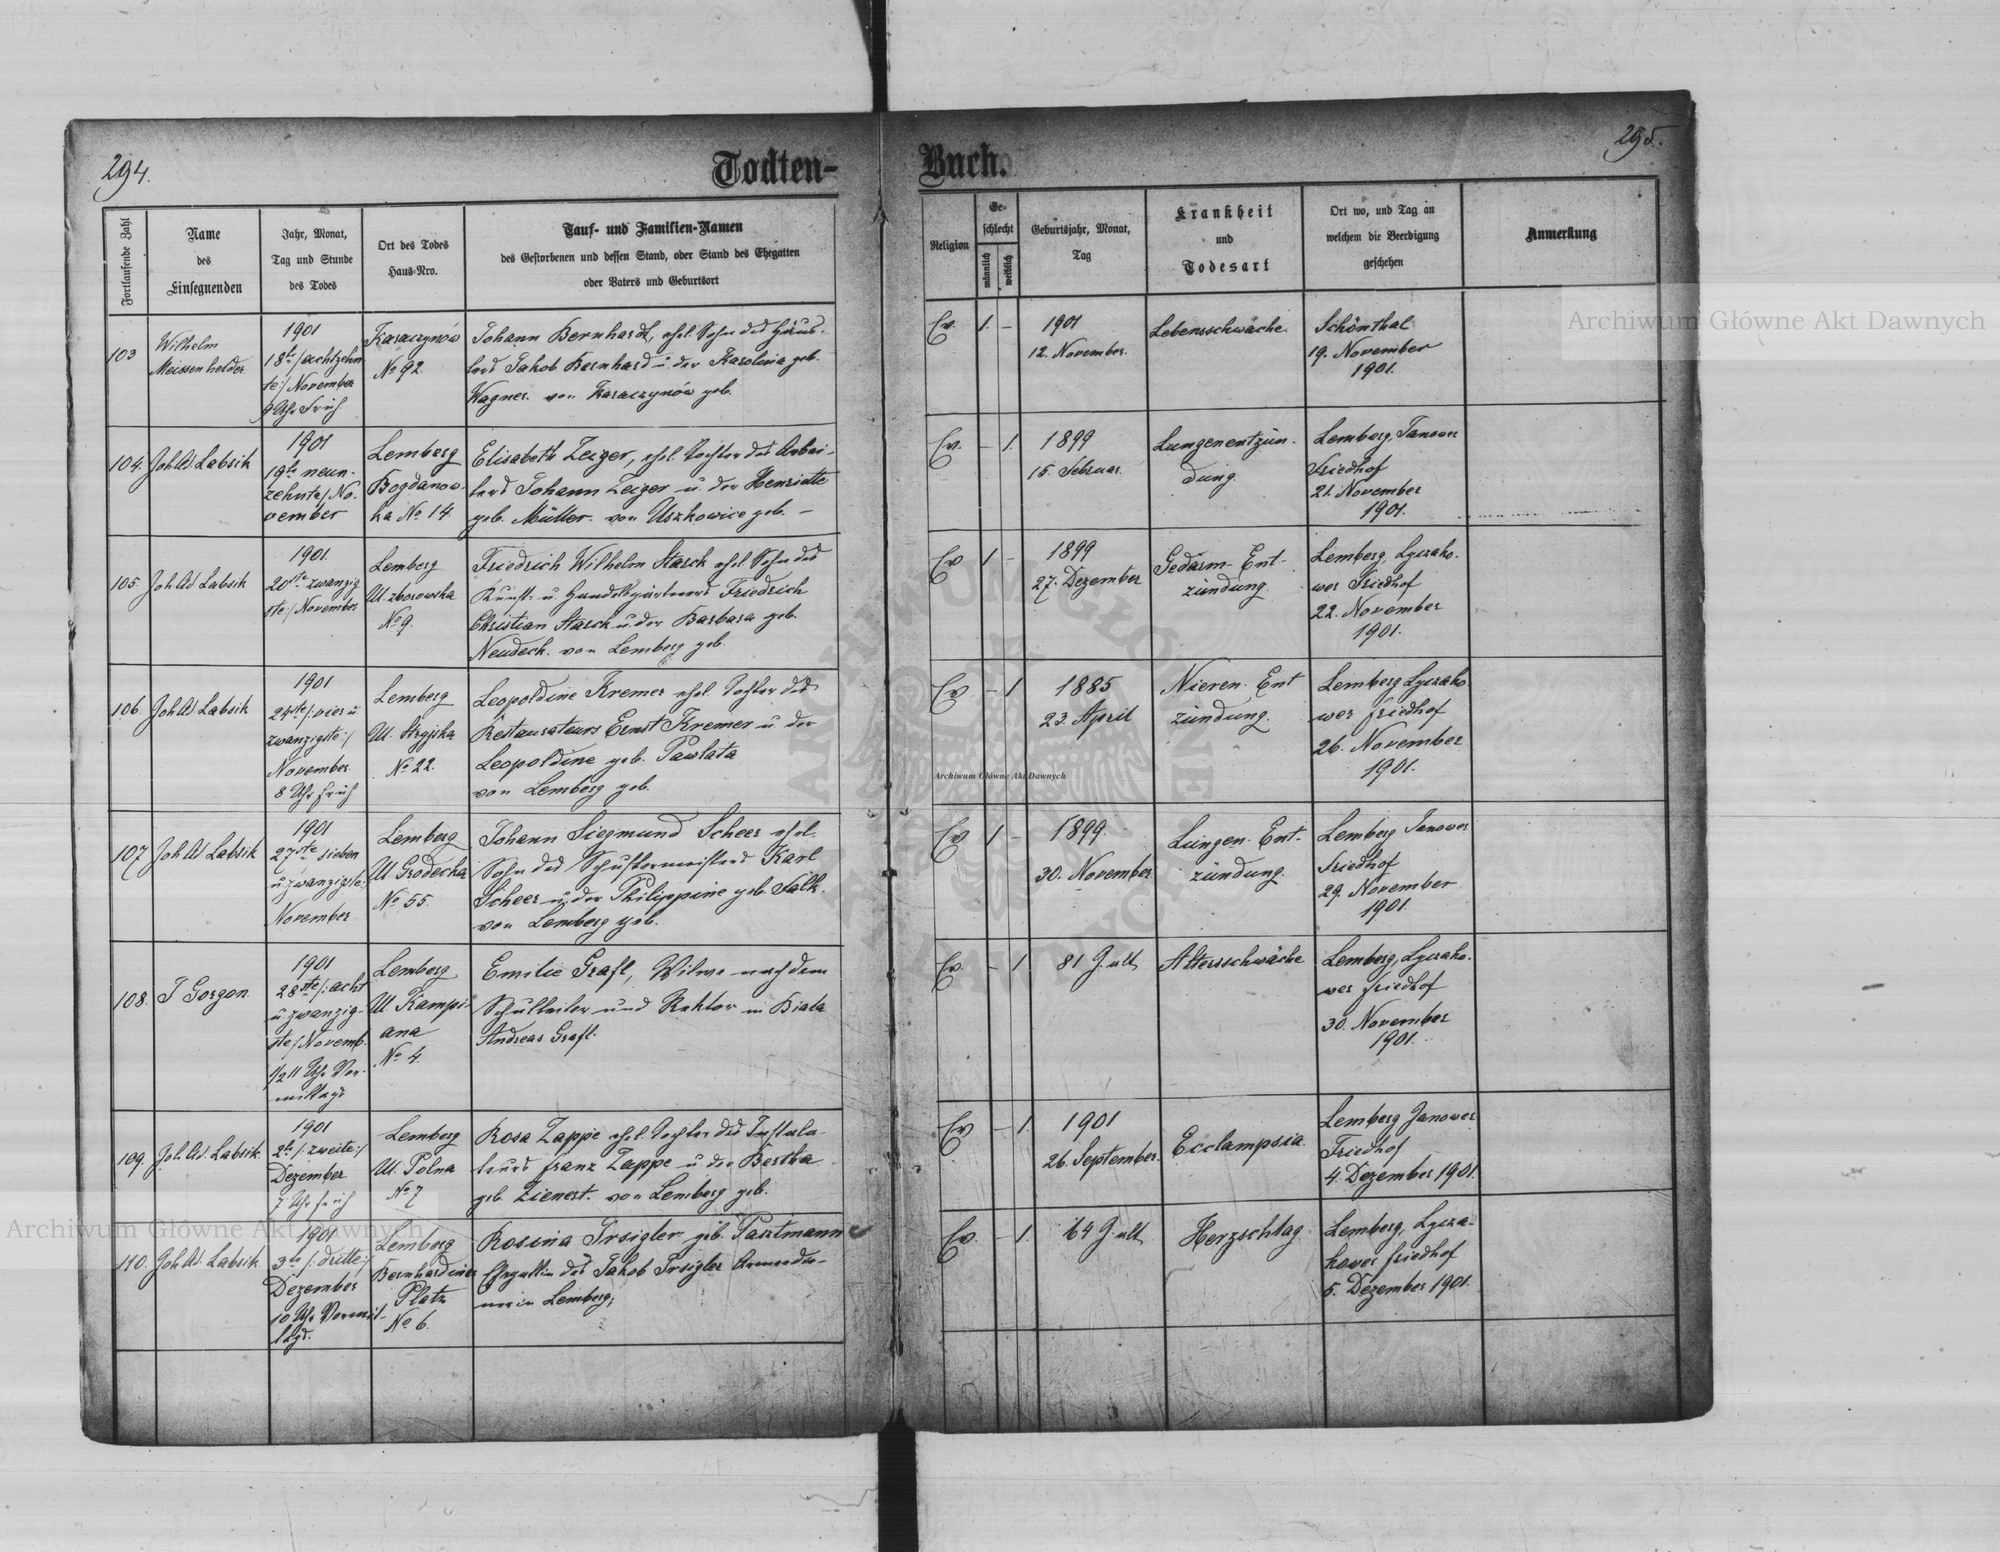 294.
Todten-
Fortlaufende Zahl
Name
des
Einsegnenden
Jahr, Monat,
Tag und Stunde
des Todes
Ort des Todes
Haus-Nro.
Tauf- und Familien-Namen
des Gestorbenen und dessen Stand, oder Stand des Ehegatten
oder Vaters und Geburtsort
103
Wilhelm
Meissenhelder
1901
18te /: achtzehn
te:/ November
9 Uhr Früh
Karaczynów
No 92.
Johann Bernhardt, ehel. Sohn des Häus-
lers Jakob Bernhard u. der Karolina geb.
Wagner. von Karaczynów geb.
104.
Joh Ad. Labsik
1901
19te neun-
zehnte/. No-
vember
Lemberg
Bogdanow-
ka No 14.
Elisabeth Zeiger, ehel. Tochter des Arbei-
ters Johann Zeiger u. der Henriette
geb. Müller. von Uszkowice geb. –
105.
Joh Ad Labsik
1901
20ste zwanzig
ste:/ November
Lemberg
Ul. zborowska
No 9.
Friedrich Wilhelm Starck ehel Sohn des
Kunst- u. Handelsgärtners Friedrich
Christian Starck u. der Barbara geb.
Neudeck. von Lemberg geb.
106.
Joh Ad Labsik
1901
24ste /: vier u
zwanzigste:/
November.
8 Uhr früh
Lemberg
Ul. Stryjska
No 22.
Leopoldine Kremer ehel. Tochter des
Restaurateurs Ernst Kremer u der
Leopoldine geb. Pawlata
von Lemberg geb.
107
Joh Ad Labsik
1901
27ste sieben
u. zwanzigste:
November
Lemberg
Ul Grodecka
No 55.
Johann Siegmund Scheer ehel.
Sohn des Schustermeisters Karl
Scheer u. der Philippine geb. Falk.
von Lemberg geb.
108.
J Gorgon.
1901
28ste /: acht
u. zwanzig-
ste:/ Novemb.
1/2 11 Uhr Vor-
mittags
Lemberg
Ul. Kampi-
ana
No 4.
Emilie Grafl, Witwe nach dem
Schulleiter und Rektor in Biala
Andreas Grafl.
109.
Joh. Ad. Labsik.
1901
2te /: zweite:/
Dezember
7 Uhr früh
Lemberg
Ul. Polna
No 7
Rosa Zappe ehel. Tochter des Instala-
teurs Franz Zappe u der Bertha
geb. Zienert. von Lemberg geb.
110.
Joh Ad. Labsik.
1901
3te /: dritte:/
Dezember
10 Uhr Vormit-
tags.
Lemberg
Bernhardiner
Platz
No 6.
Rosina Irsigler geb. Partmann
Ehegattin des Jakob Irsigler
in Lemberg;
295.
Buch.
Religion
Ge-
schlecht
männlich
weiblich
Geburtsjahr, Monat,
Tag
Krankheit
und
Todesart
Ort wo, und Tag an
welchem die Beerdigung
geschehen
Anmerkung
Ev. 1. –
1901
12. November.
Lebensschwäche.
Schönthal
19. November
1901.
Ev. – 1.
1899
15. Februar.
Lungenentzün-
dung.
Lemberg, Janower
Friedhof
21. November
1901.
Ev 1 –
1899
27. Dezember
Gedärm- Ent-
zündung.
Lemberg, Lyczako-
wer Friedhof
22. November
1901.
Ev – 1
1885
23. April
Nieren- Ent
zündung.
Lemberg Lyczako-
wer friedhof
26. November
1901.
Ev 1 –
1899.
30. November.
Lungen- Ent-
zündung.
Lemberg Janower
Friedhof
29. November
1901.
Ev. – 1
81 J. alt
Altersschwäche
Lemberg, Lyczako-
wer friedhof
30. November
1901.
Ev – 1.
1901
26. September.
Ecclampsia.
Lemberg Janower
Friedhof
4. Dezember 1901.
Ev. – 1.
64 J. alt
Herzschlag.
Lemberg, Lycza-
kower friedhof
5. Dezember 1901.
Archiwum Główne Akt Dawnych
Archiwum Główne Akt Dawnych
Archiwum Główne Akt Dawnych